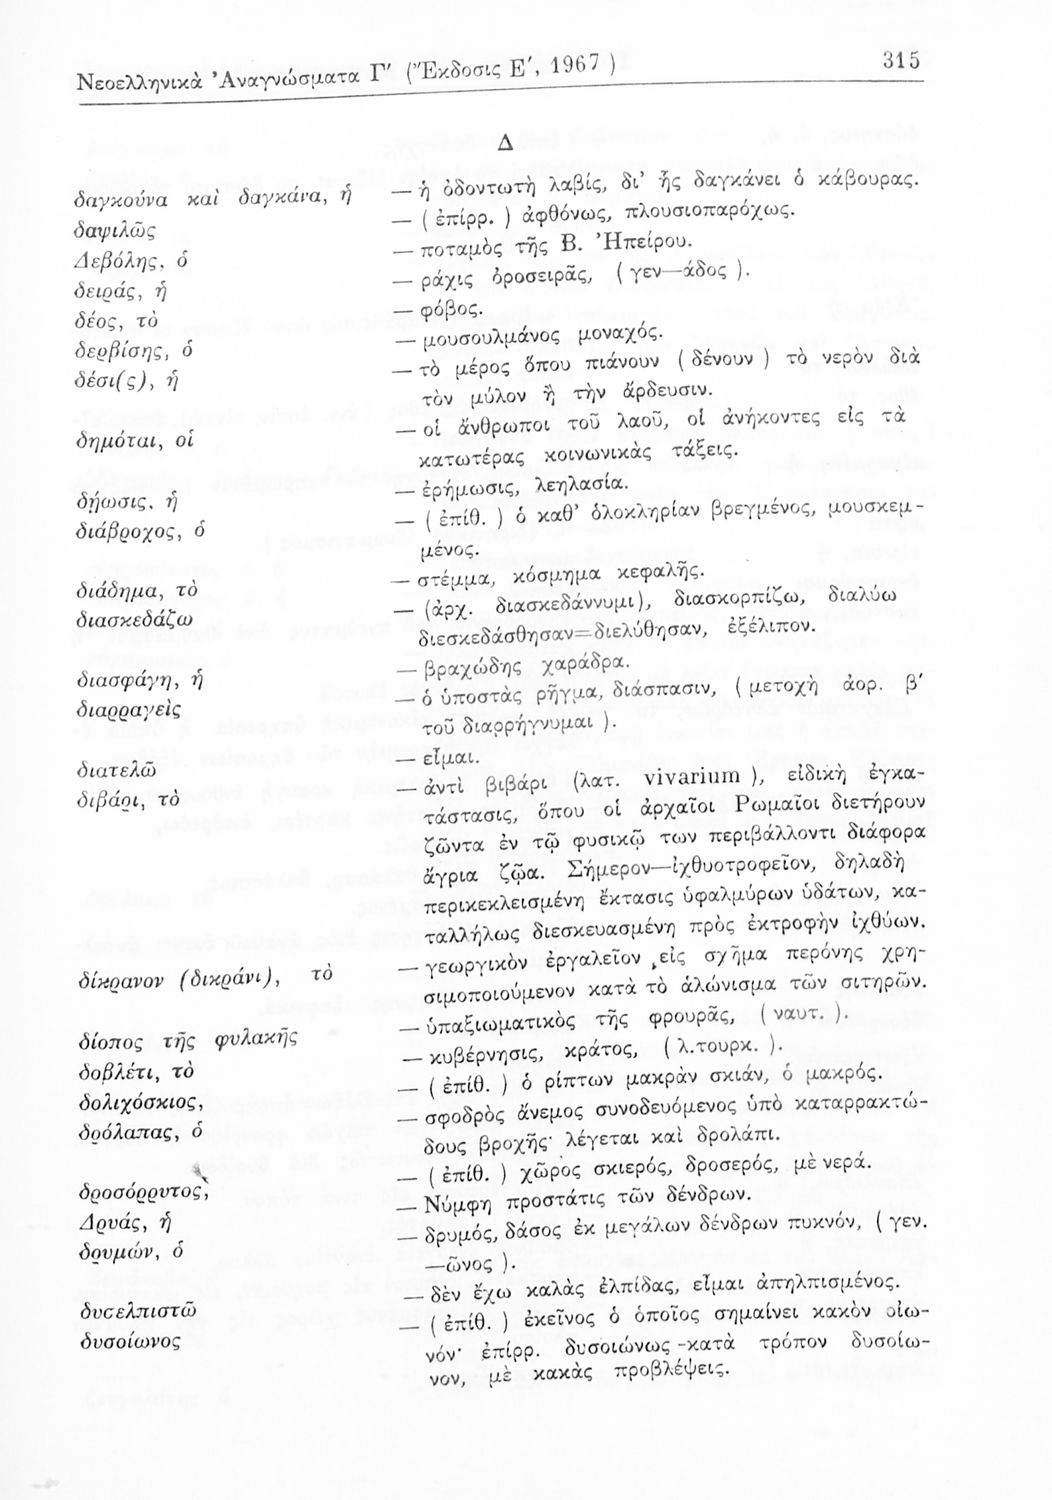 Νεοελληνικὰ Ἀναγνώσματα Γ' (Ἔκδοσις Ε', 1967 ) 315
Δ
δαγκούνα καὶ δαγκάνα, ἡ — ἡ ὀδοντωτὴ λαβίς, δι' ἧς δαγκάνει ὁ κάβουρας.
δαψιλῶς — ( ἐπίρρ. ) ἀφθόνως, πλουσιοπαρόχως.
Δεβόλης, ὁ — ποταμὸς τῆς Β. Ἠπείρου.
δειράς, ἡ — ράχις ὀροσειρᾶς, ( γεν—άδος ).
δέος, τὸ — φόβος.
δερβίσης, ὁ — μουσουλμάνος μοναχός.
δέσι(ς), ἡ — τὸ μέρος ὅπου πιάνουν ( δένουν ) τὸ νερὸν διὰ
τὸν μύλον ἢ τὴν ἄρδευσιν.
δημόται, οἱ — οἱ ἄνθρωποι τοῦ λαοῦ, οἱ ἀνήκοντες εἰς τὰ
κατωτέρας κοινωνικὰς τάξεις.
δῄωσις, ἡ — ἐρήμωσις, λεηλασία.
διάβροχος, ὁ — ( ἐπίθ. ) ὁ καθ' ὁλοκληρίαν βρεγμένος, μουσκεμ-
μένος.
διάδημα, τὸ — στέμμα, κόσμημα κεφαλῆς.
διασκεδάζω — (ἀρχ. διασκεδάννυμι), διασκορπίζω, διαλύω
διεσκεδάσθησαν=διελύθησαν, ἐξέλιπον.
διασφάγη, ἡ — βραχώδης χαράδρα.
διαρραγεὶς — ὁ ὑποστὰς ρῆγμα, διάσπασιν, ( μετοχὴ ἀορ. β'
τοῦ διαρρήγνυμαι ).
διατελῶ — εἶμαι.
διβάρι, τὸ — ἀντὶ βιβάρι (λατ. vivarium ), εἰδικὴ ἐγκα-
τάστασις, ὅπου οἱ ἀρχαῖοι Ρωμαῖοι διετήρουν
ζῶντα ἐν τῷ φυσικῷ των περιβάλλοντι διάφορα
ἄγρια ζῷα. Σήμερον—ἰχθυοτροφεῖον, δηλαδὴ
περικεκλεισμένη ἔκτασις ὑφαλμύρων ὑδάτων, κα-
ταλλήλως διεσκευασμένη πρὸς ἐκτροφὴν ἰχθύων.
δίκρανον (δικράνι), τὸ — γεωργικὸν ἐργαλεῖον εἰς σχῆμα περόνης χρη-
σιμοποιούμενον κατὰ τὸ ἁλώνισμα τῶν σιτηρῶν.
δίοπος τῆς φυλακῆς — ὑπαξιωματικὸς τῆς φρουρᾶς, ( ναυτ. ).
δοβλέτι, τὸ — κυβέρνησις, κράτος, ( λ.τουρκ. ).
δολιχόσκιος, — ( ἐπίθ. ) ὁ ρίπτων μακρὰν σκιάν, ὁ μακρός.
δρόλαπας, ὁ — σφοδρὸς ἄνεμος συνοδευόμενος ὑπὸ καταρρακτώ-
δους βροχῆς· λέγεται καὶ δρολάπι.
δροσόρρυτος, — ( ἐπίθ. ) χῶρος σκιερός, δροσερός, μὲ νερά.
Δρυάς, ἡ — Νύμφη προστάτις τῶν δένδρων.
δρυμών, ὁ — δρυμός, δάσος ἐκ μεγάλων δένδρων πυκνόν, ( γεν.
—ῶνος ).
δυσελπιστῶ — δὲν ἔχω καλὰς ἐλπίδας, εἶμαι ἀπηλπισμένος.
δυσοίωνος — ( ἐπίθ. ) ἐκεῖνος ὁ ὁποῖος σημαίνει κακὸν οἰω-
νόν· ἐπίρρ. δυσοιώνως -κατὰ τρόπον δυσοίω-
νον, μὲ κακὰς προβλέψεις.